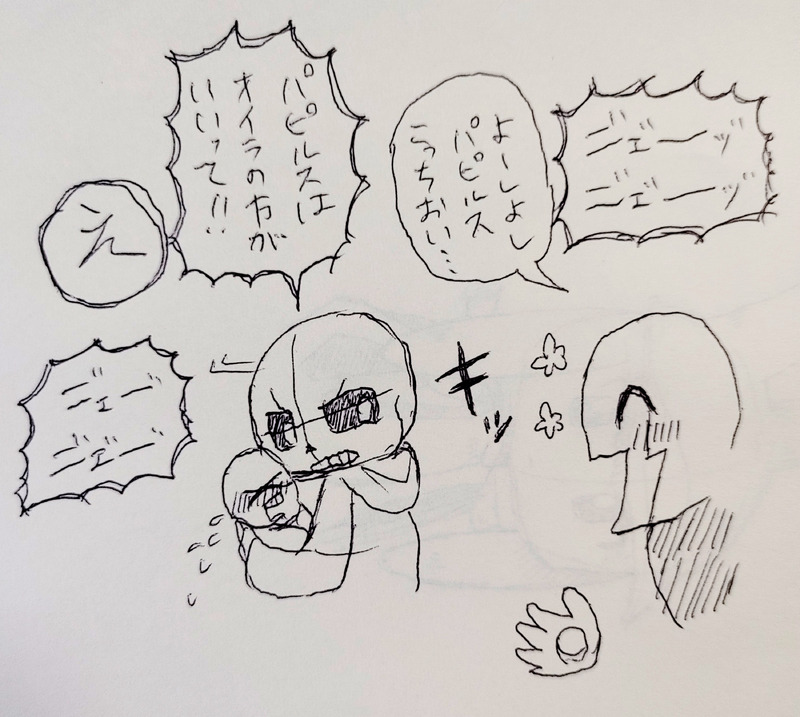 ビェーッ
ビェーッ
よーしよし
パピルス
こっちおい…
パピルスは
オイラの方が
いいって!!
え
キッ
ビェー
ビェー